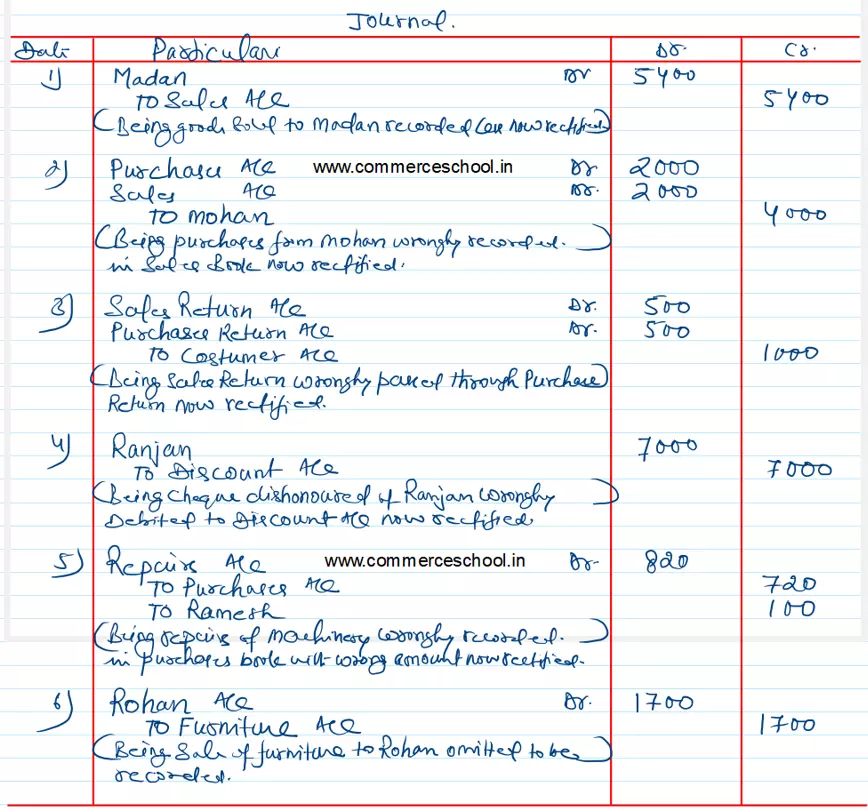 Journal.
Date Particulars Dr. Cr.
1) Madan Dr 5400
To Sales A/c 5400
(Being goods sold to Madan recorded less now rectified)
2) Purchases A/c www.commerceschool.in Dr 2000
Sales A/c Dr. 2000
To mohan 4000
(Being purchases from mohan wrongly recorded.
in Sales Book now rectified.
3) Sales Return A/c Dr. 500
Purchases Return A/c Dr. 500
To Costumer A/c 1000
(Being Sales Return wrongly passed through Purchase)
Return now rectified.
4) Ranjan 7000
To Discount A/c 7000
(Being Cheque dishonoured of Ranjan wrongly)
Debited to Discount A/c now rectified
5) Repairs A/c www.commerceschool.in Dr. 820
To Purchases A/c 720
To Ramesh 100
(Being repairs of Machinery wrongly recorded.)
in purchases book with wrong amount now rectified.
6) Rohan A/c Dr. 1700
To Furniture A/c 1700
(Being Sale of furniture to Rohan omitted to be)
recorded.